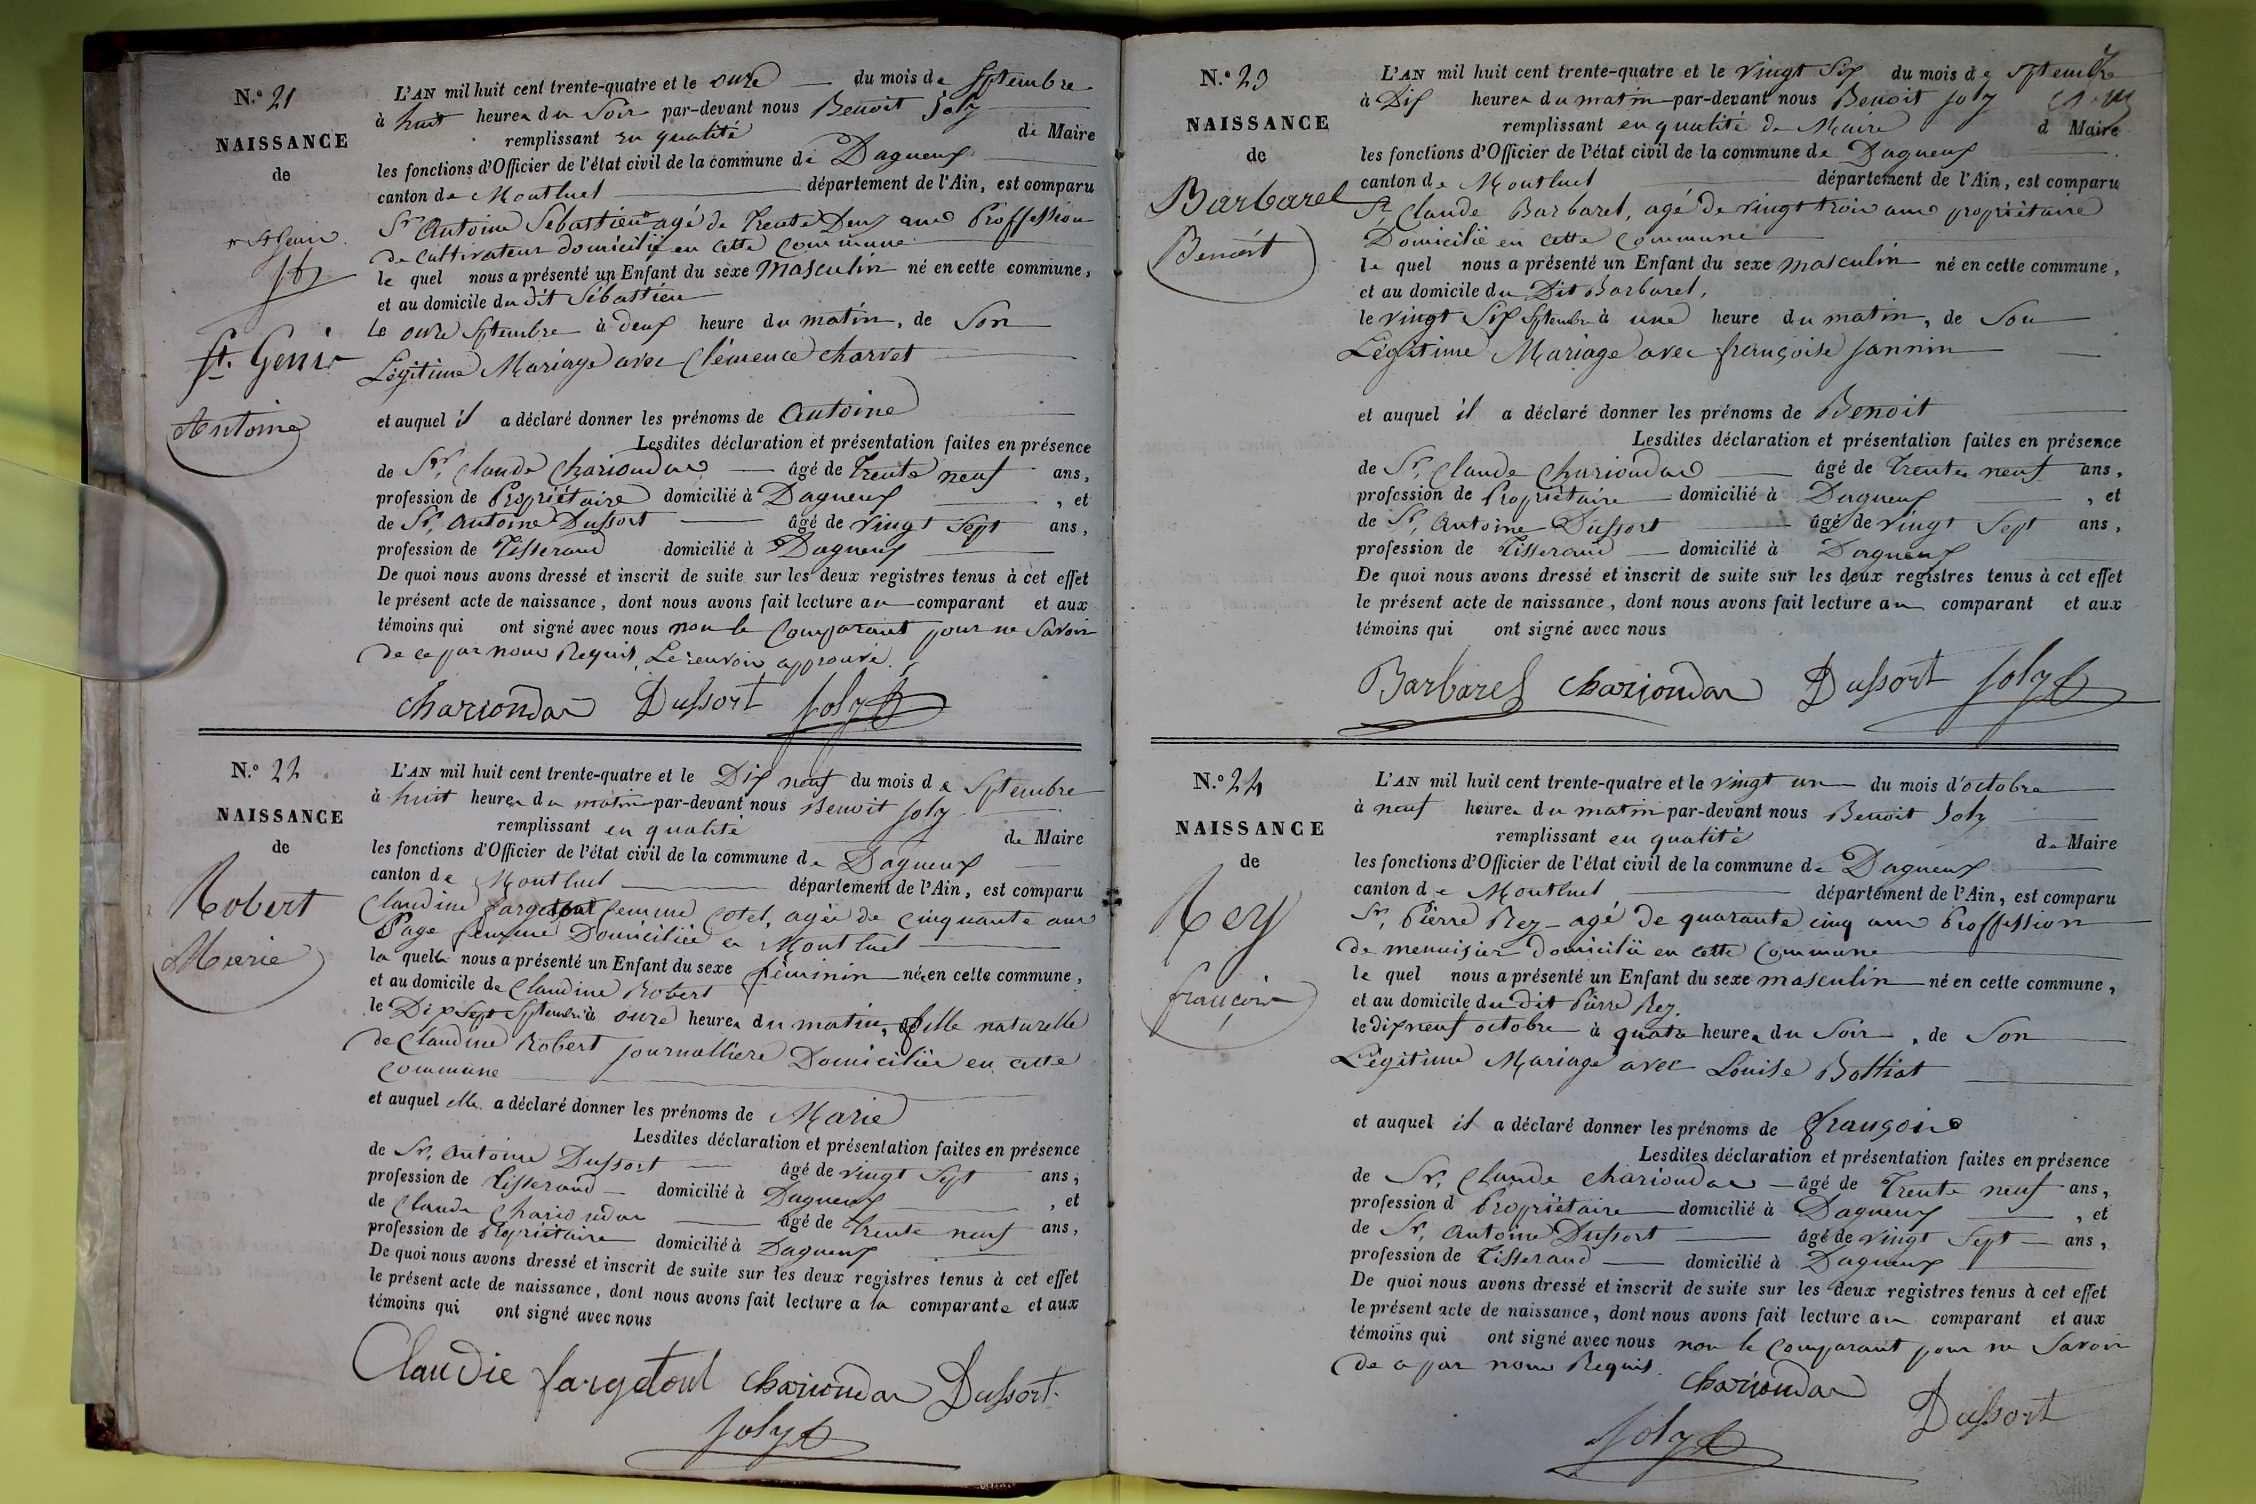 N.o 21
NAISSANCE
de
* St Genis
Joly
St. Genis
Antoine
L'AN mil huit cent trente-quatre et le onze du mois de Septembre
à huit heures du Soir par-devant nous Benoit Joly
remplissant en qualité de Maire
les fonctions d'Officier de l'état civil de la commune de Dagneux
canton de Montluel département de l'Ain, est comparu
Sr Antoine Sébastien * agé de Trente Deux ans Proffession
de cultivateur domicilié en cette commune
le quel nous a présenté un Enfant du sexe Masculin né en cette commune,
et au domicile du dit Sébastien
le onze Septembre à deux heure du matin, de Son
Légitime Mariage avec Clémence Charvet
et auquel il a déclaré donner les prénoms de Antoine
Lesdites déclaration et présentation faites en présence
de Sr. Claude Charioudas âgé de Trente neuf ans,
profession de Propriétaire domicilié à Dagneux, et
de Sr. Antoine Dussort âgé de vingt Sept ans,
profession de Tisserand domicilié à Dagneux
De quoi nous avons dressé et inscrit de suite sur les deux registres tenus à cet effet
le présent acte de naissance, dont nous avons fait lecture au comparant et aux
témoins qui ont signé avec nous non le Comparant pour ne Savoir
de ce par nous Requis. Le renvoi approuvé.
Charioudas Dussort Joly
N.o 22
NAISSANCE
de
Robert
Marie
L'AN mil huit cent trente-quatre et le Dix neuf du mois de Septembre
à huit heures du matin par-devant nous Benoit Joly
remplissant en qualité de Maire
les fonctions d'Officier de l'état civil de la commune de Dagneux
canton de Montluel département de l'Ain, est comparu
Claudine fargetout femme Cotel, agée de cinquante ans
Sage femme Domiciliée à Montluel
la quelle nous a présenté un Enfant du sexe féminin né en cette commune,
et au domicile de Claudine Robert
le Dix Sept Septembre à onze heures du matin, fille naturelle
de Claudine Robert journallière Domiciliée en cette
commune
et auquel elle a déclaré donner les prénoms de Marie
Lesdites déclaration et présentation faites en présence
de Sr. Antoine Dussort âgé de vingt Sept ans,
profession de Tisserand domicilié à Dagneux, et
de Claude Charioudas âgé de Trente neuf ans,
profession de Propriétaire domicilié à Dagneux
De quoi nous avons dressé et inscrit de suite sur les deux registres tenus à cet effet
le présent acte de naissance, dont nous avons fait lecture a la comparante et aux
témoins qui ont signé avec nous
Claudie fargetout Charioudas Dussort
Joly
N.o 23
NAISSANCE
de
Barbarel
Benoit
L'AN mil huit cent trente-quatre et le vingt Six du mois de Septembre
à Dix heures du matin par-devant nous Benoit Joly
remplissant en qualité de Maire d Maire
les fonctions d'Officier de l'état civil de la commune de Dagneux
canton de Montluel département de l'Ain, est comparu
Sr Claude Barbarel, agé de vingt trois ans propriétaire
Domicilié en cette commune
le quel nous a présenté un Enfant du sexe masculin né en cette commune,
et au domicile du Dit Barbarel,
le vingt Six Septembre à une heure du matin, de Son
Légitime Mariage avec françoise Jannin
et auquel il a déclaré donner les prénoms de Benoit
Lesdites déclaration et présentation faites en présence
de Sr. Claude Charioudas âgé de Trente neuf ans,
profession de Propriétaire domicilié à Dagneux, et
de Sr. Antoine Dussort âgé de vingt Sept ans,
profession de Tisserand domicilié à Dagneux
De quoi nous avons dressé et inscrit de suite sur les deux registres tenus à cet effet
le présent acte de naissance, dont nous avons fait lecture au comparant et aux
témoins qui ont signé avec nous
Barbarel Charioudas Dussort Joly
N.o 24
NAISSANCE
de
Rey
françois
L'AN mil huit cent trente-quatre et le vingt un du mois d'octobre
à neuf heures du matin par-devant nous Benoit Joly
remplissant en qualité de Maire
les fonctions d'Officier de l'état civil de la commune de Dagneux
canton de Montluel département de l'Ain, est comparu
Sr. Pierre Rey agé de quarante cinq ans Proffession
de menuisier domicilié en cette commune
le quel nous a présenté un Enfant du sexe masculin né en cette commune,
et au domicile du dit Pierre Rey.
le dix neuf octobre à quatre heures du Soir, de Son
Légitime Mariage avec Louise Bottiat
et auquel il a déclaré donner les prénoms de françois
Lesdites déclaration et présentation faites en présence
de Sr. Claude Charioudas âgé de Trente neuf ans,
profession d Propriétaire domicilié à Dagneux, et
de Sr. Antoine Dussort âgé de vingt Sept ans,
profession de Tisserand domicilié à Dagneux
De quoi nous avons dressé et inscrit de suite sur les deux registres tenus à cet effet
le présent acte de naissance, dont nous avons fait lecture au comparant et aux
témoins qui ont signé avec nous non le Comparant pour ne Savoir
de ce par nous Requis.
Charioudas
Dussort
Joly